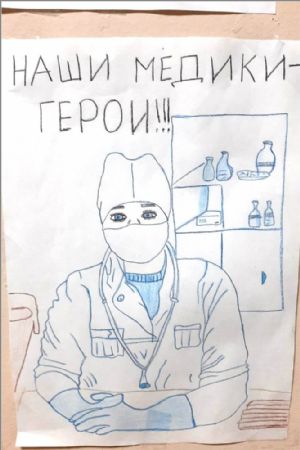 НАШИ МЕДИКИ-
ГЕРОИ!!!